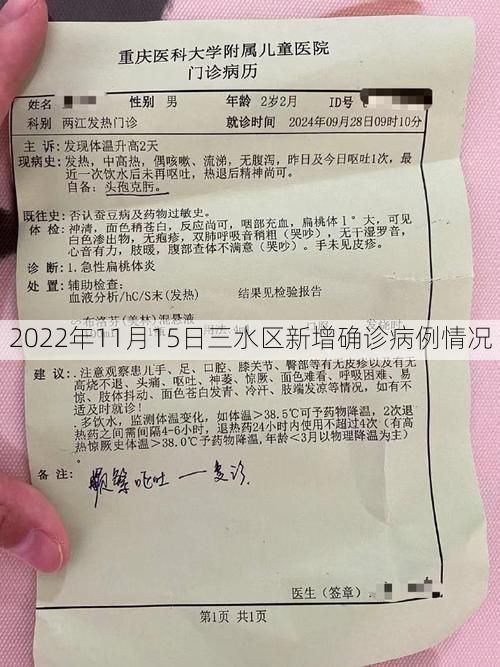 重庆医科大学附属儿童医院
门诊病历
姓名
性别 男
年龄 2岁2月
ID号
科别 两江发热门诊
就诊时间 2024年09月28日09时10分
主 诉: 发现体温升高2天
现病史: 发热, 中高热, 偶咳嗽、流涕, 无腹泻, 昨日及今日呕吐1次, 最
近一次饮水后未再呕吐, 热退后精神尚可。
自备: 头孢克肟。
既往史: 否认蚕豆病及药物过敏史。
体 检: 神清, 面色稍苍白, 反应尚可, 咽部充血, 扁桃体Ⅰ°大, 可见
白色渗出物, 无疱疹, 双肺呼吸音稍粗(哭吵), 无干湿罗音,
心音有力, 肢暖, 腹部查体不满意(哭吵)。手未见皮疹。
诊 断: 1.急性扁桃体炎
处 置: 辅助检查:
血液分析/hC/S末(发热) 结果见检验报告
布洛芬(美林)混悬液
2022年11月15日三水区新增确诊病例情况
建 议: 注意观察患儿手、足、口腔、膝关节、臀部等有无皮疹以及有无
高烧不退、头痛、呕吐、神萎、惊厥、面色难看、呼吸困难、易
惊、肢体抖动、面色苍白发青、冷汗、肢端发凉等情况, 如有不
适及时就诊!
多饮水, 监测体温变化, 如体温>38.5℃可予药物降温, 2次退
热药之间需间隔4-6小时, 退热药24小时内使用不超过4次(有高
热惊厥史体温>38.0℃予药物降温,年龄<3月以物理降温为主)
。
备 注: 频繁呕吐 — 复诊.
医生(签章):
第1页 共1页